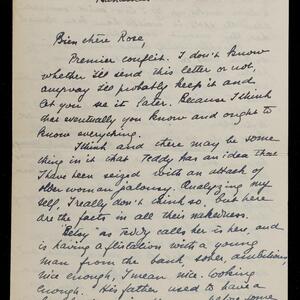 Bien chère Rose,
Premier conflit. I don't know
whether I'll send this letter or not,
anyway I'll probably keep it and
let you see it later. Because I think
that eventually you know and ought to
know everything.
I think and there may be some
thing in it that Teddy has an idea that
I have been seized with an attack of
older woman jealousy. Analyzing my
self, I really don't think so, but here
are the facts in all their nakedness.
"Betsy" as Teddy calls her is here, and
is having a flirtation with a young
man from the bank, sober, ambitious,
nice enough, I mean nice-looking
enough. His father used to have a